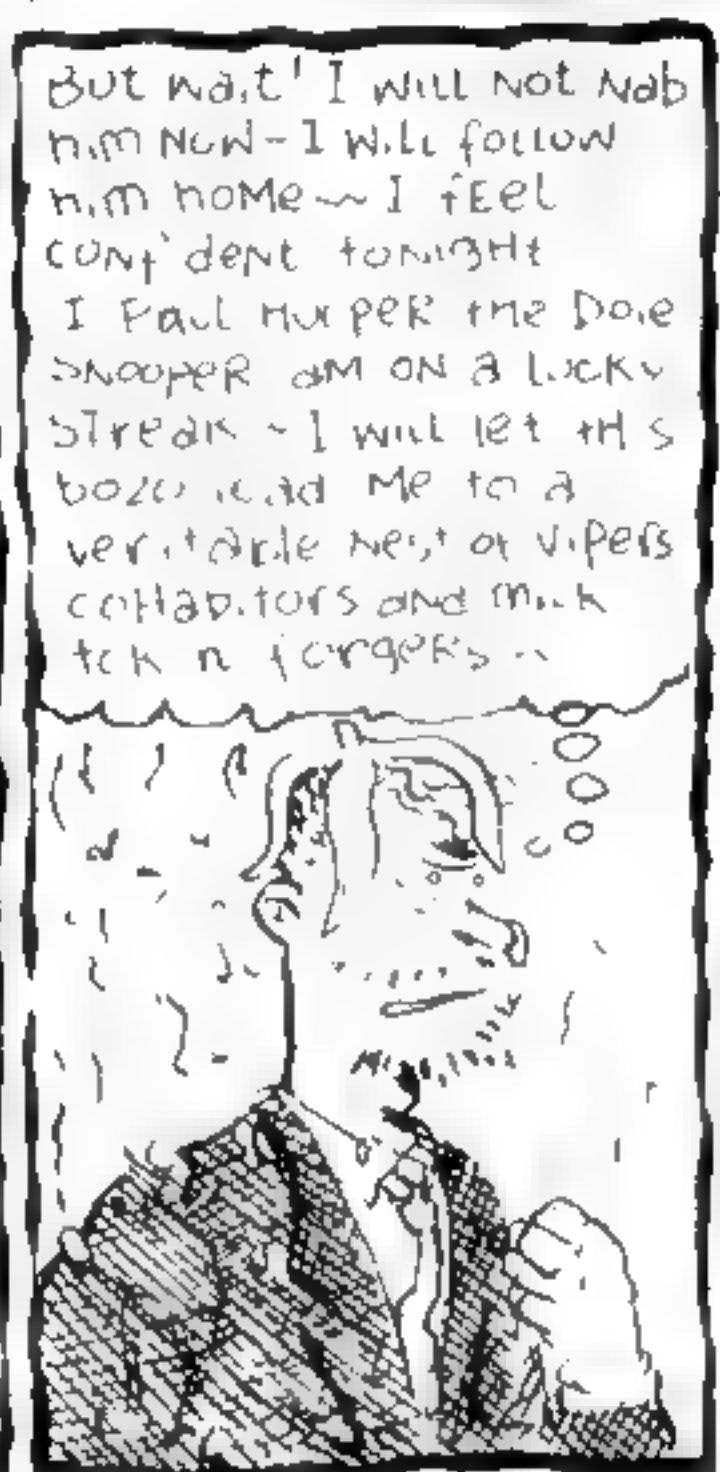 But wait! I will not nab
him now - I will follow
him home ~ I feel
confident tonight
I Paul Murper the Dole
snooper am on a lucky
streak - I will let this
bozo lead me to a
veritable nest of vipers
cohabitors and milk
token forgers..